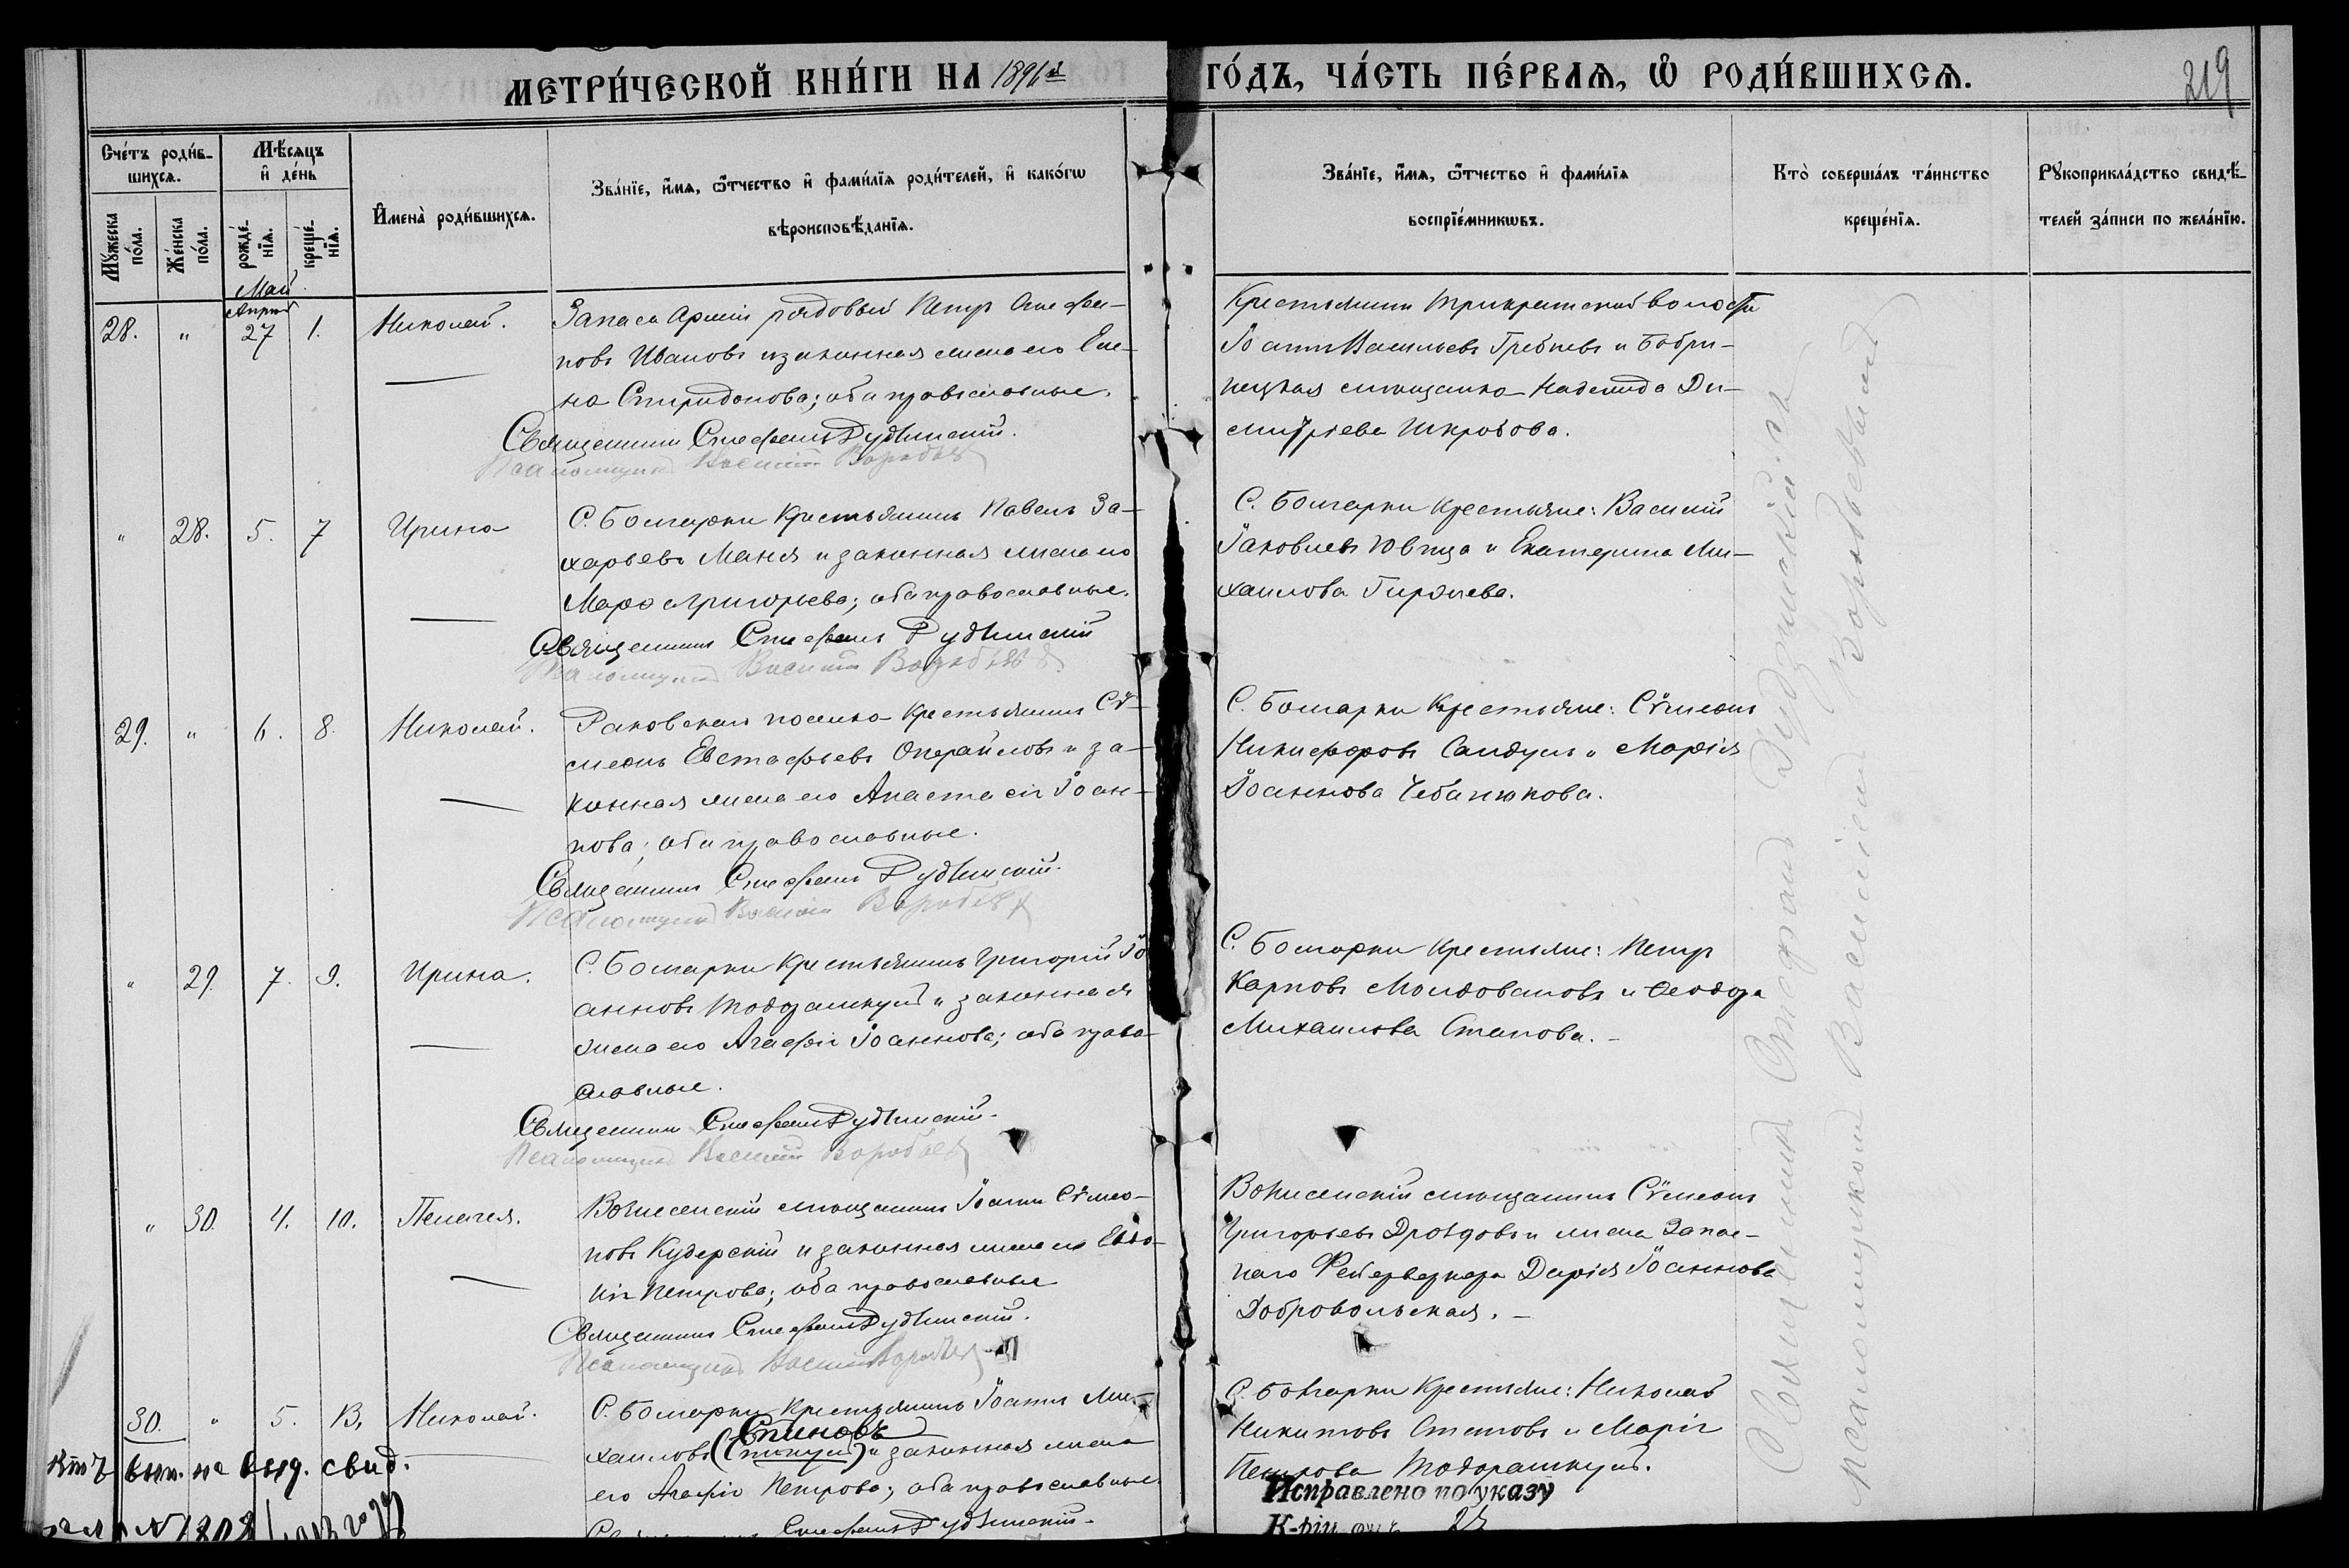 МЕТРИ́ЧЕСКОЙ КНИ́ГИ НА 1896й ГО́ДЪ, ЧА́СТЬ ПЕ́РВАѦ, Ѡ҆ РОДИ́ВШИХСѦ.
219
Сче́тъ роди́в-
шихсѧ.
Мꙋ́жеска по́ла.
Же́нска по́ла.
Мѣ́сѧцъ и҆ де́нь
рожде́-нїѧ.
креще́-нїѧ.
И҆мена̀ роди́вшихсѧ.
Зва́нїе, и҆́мѧ, ѻ҆́тчество и҆ фами́лїѧ роди́телей, и҆ како́гѡ
вѣроисповѣ́данїѧ.
Зва́нїе, и҆́мѧ, ѻ҆́тчество и҆ фами́лїѧ
воспрїе́мникѡвъ.
Кто̀ соверша́лъ та́инство
креще́нїѧ.
Рꙋкоприкла́дство свидѣ́-
телей за́писи по жела́нїю.
Май
Апрѣл
28. " 27 1. Николай.
Запаса Арміи рядовый Петръ Стефа-
новъ Ивановъ и законная жена его Еле-
на Спиридонова; оба православные.
Священникъ Стефанъ Рудзинскій.
Псаломщикъ Василій Воробьевъ
Крестьянинъ Трикратской волости
Іоаннъ Васильевъ Гребневъ и Бобри-
нецкая мѣщанка Надежда Ди-
митріева Шкробова.
" 28. 5. 7 Ирина
С. Болгарки Крестьянинъ Павелъ За-
харьевъ Маня и законная жена его
Марѳа Григорьева; оба православные.
Священникъ Стефанъ Рудзинскій
Псаломщикъ Василій Воробьевъ
С. Болгарки Крестьяне: Василій
Іаковлевъ и Екатерина Ми-
хаилова
29. " 6. 8. Николай.
Раковскаго поселка Крестьянинъ Сѵ-
меонъ Евстафьевъ и за-
конная жена его Анастасія Іоан-
нова; оба православные.
Священникъ Стефанъ Рудзинскій.
Псаломщикъ Василій Воробьевъ
С. Болгарки Крестьяне: Сѵмеонъ
Никифоровъ Сандулъ и Марія
Іоаннова Чебанюкова.
" 29. 7. 9. Ирина.
С. Болгарки Крестьянинъ Григорій Іо
анновъ Тодорашкулъ и законная
жена его Агафія Іоаннова; оба право-
славные.
Священникъ Стефанъ Рудзинскій.
Псаломщикъ Василій Воробьевъ
С. Болгарки Крестьяне: Петръ
Карповъ Молдовановъ и Ѳеодора
Михаилова Статова.
" 30. 4. 10. Пелагея.
Вознесенскій мѣщанинъ Іоаннъ Сѵмео-
новъ Кудерскій и законная жена его Евдо-
кія Петрова; оба православные
Священникъ Стефанъ Рудзинскій.
Псаломщикъ Василій Воробьевъ
Вознесенскій мѣщанинъ Сѵмеонъ
Григорьевъ Дроздовъ и жена Запас-
наго Фейерверкера Дарія Іоаннова
Добровольская.
30. " 5. Николай.
С. Болгарки Крестьянинъ Іоаннъ Ми-
Спиновъ
хаиловъ и законная жена
его Агафія Петрова; оба православные.
Стефанъ Рудзинскій.
С. Болгарки Крестьяне: Николай
Никитовъ Статовъ и Марія
Петрова Тодорашкулъ.
Исправлено по указу
Священникъ Стефанъ Рудзинскій съ
псаломщикомъ Василіемъ Воробьевымъ
вып. на выд. свид.